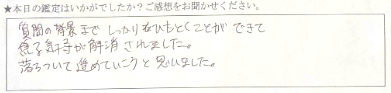 ★本日の鑑定はいかがでしたか？ご感想をお聞かせください。
質問の背景まで しっかりをひもとくことができて
焦る気持が解消されました。
落ちついて進めていこうと思いました。